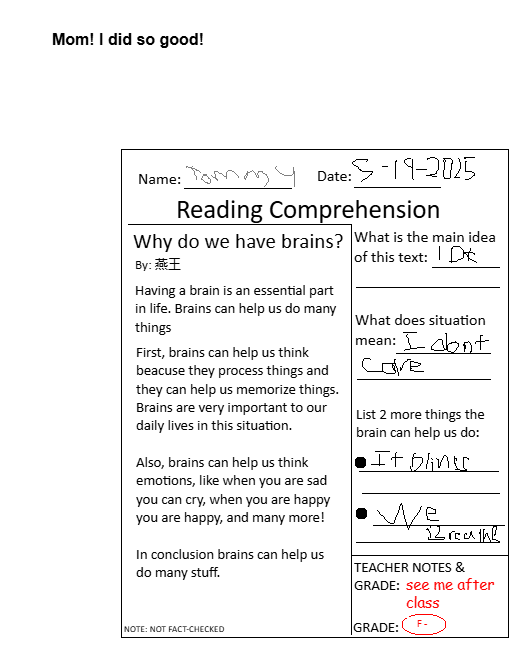 Mom! I did so good!
Name: Tommy Date: 5-19-2025
Reading Comprehension
Why do we have brains?
By: 燕王
Having a brain is an essential part
in life. Brains can help us do many
things
First, brains can help us think
beacuse they process things and
they can help us memorize things.
Brains are very important to our
daily lives in this situation.
Also, brains can help us think
emotions, like when you are sad
you can cry, when you are happy
you are happy, and many more!
In conclusion brains can help us
do many stuff.
NOTE: NOT FACT-CHECKED
What is the main idea
of this text: IDK
What does situation
mean: I dont
care
List 2 more things the
brain can help us do:
It
We
Breathe
TEACHER NOTES &
GRADE: see me after
class
GRADE: F-